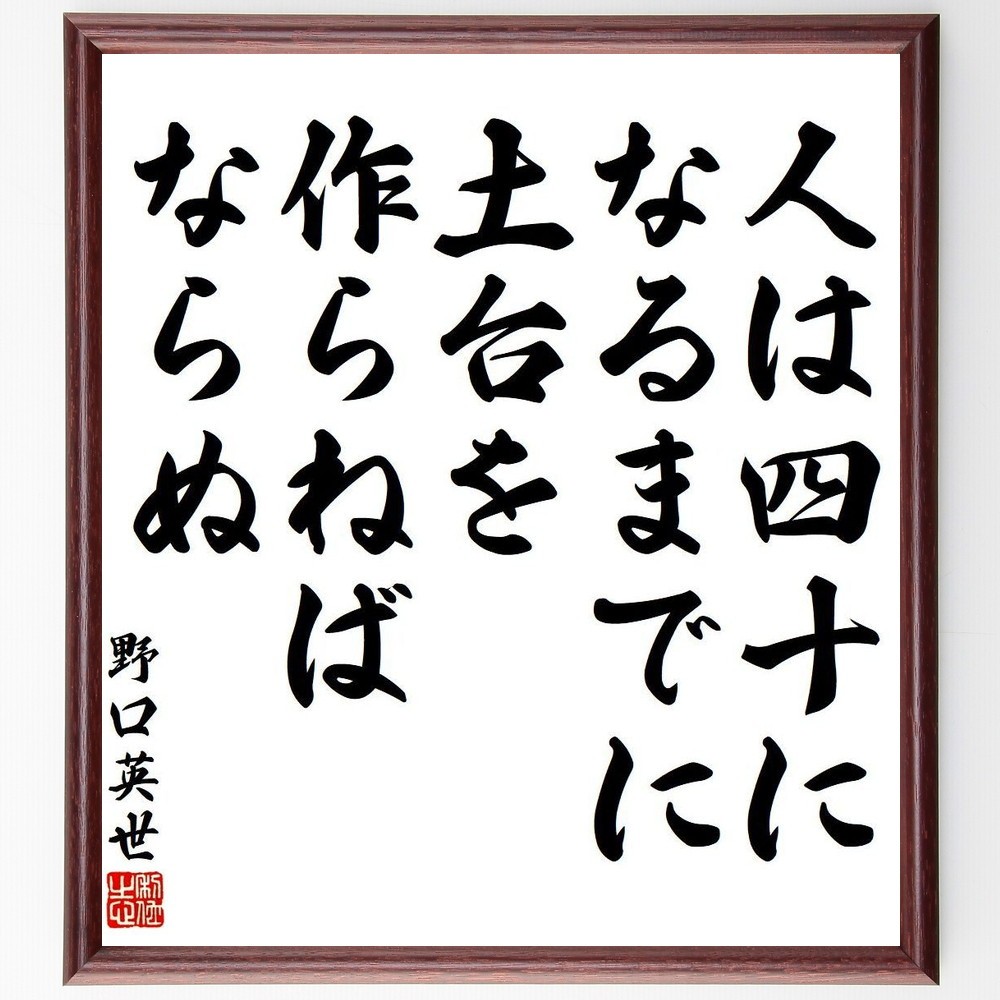 人は四十に
なるまでに
土台を
作らねば
ならぬ
野口英世